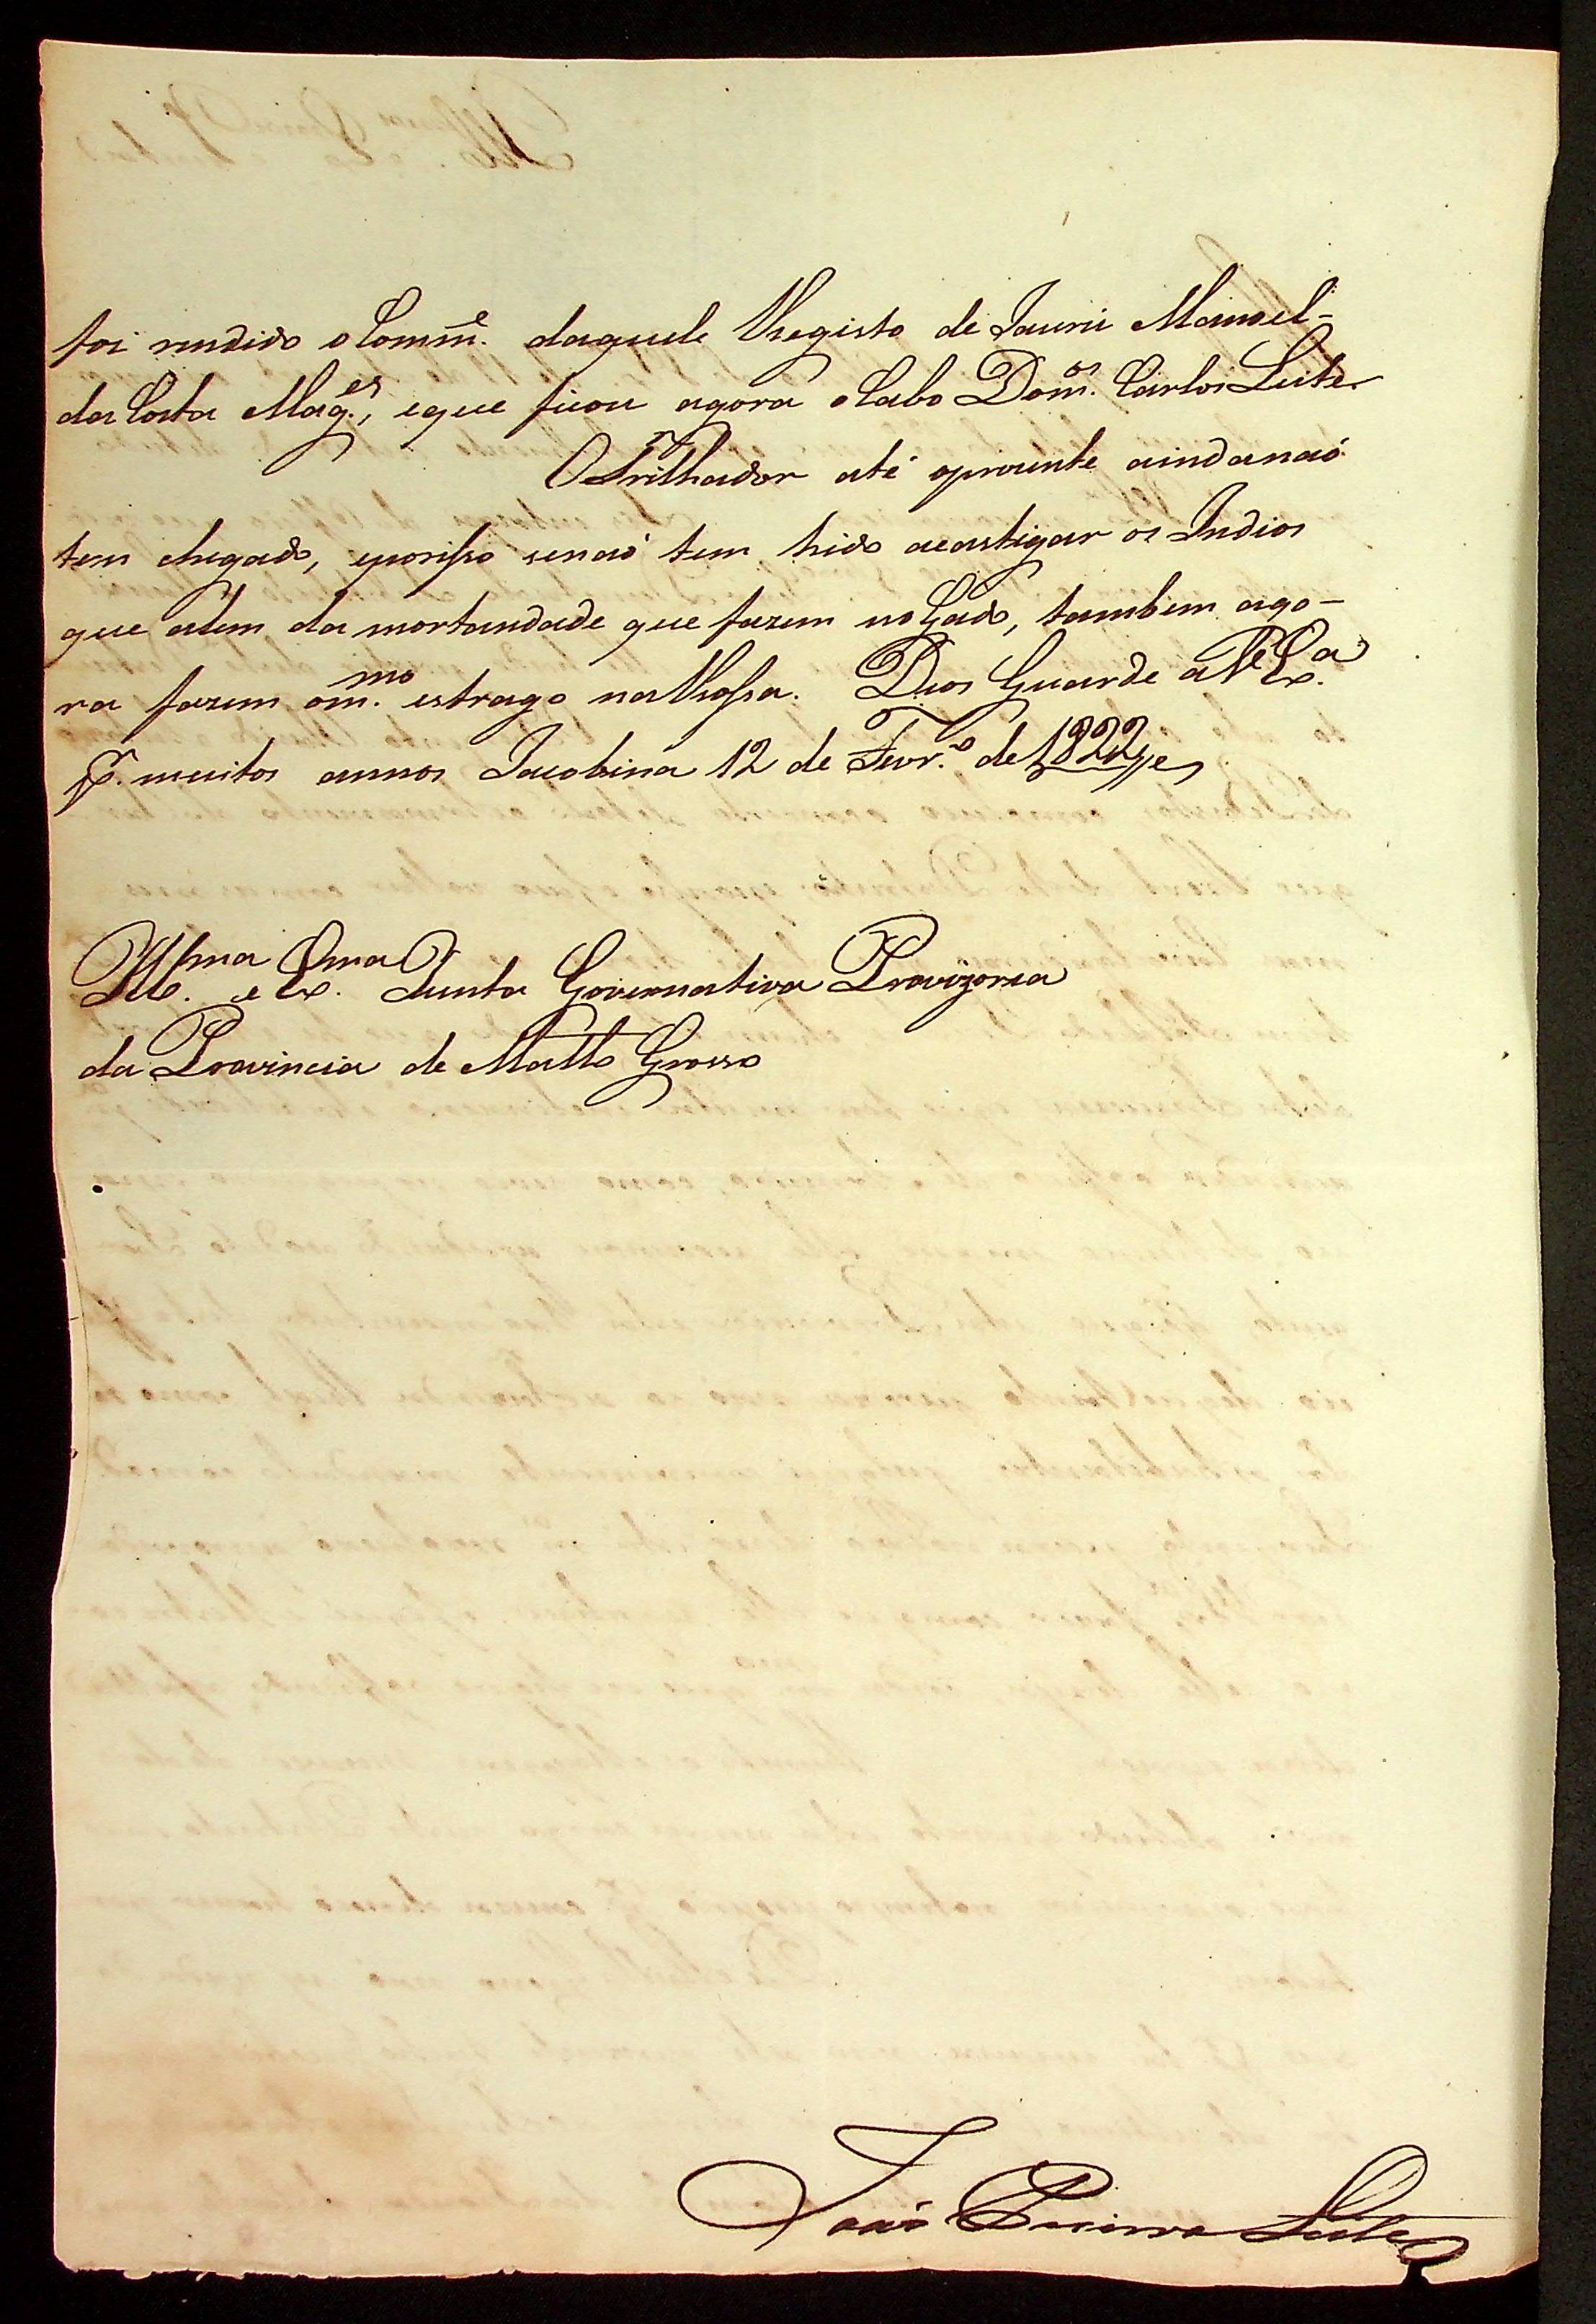 foi rendido o Comm.e daquele Rregisto de Jaurú Manoel=
da Costa Mag.es, eque ficou agora o Cabo Dom.os Carlos Leite
O Trilhador até oprezente aindanaó
tem chegado, eporisso senaó tem hido acastigar os Indios
que alem da mortandade que fazem no Gado, tambem ago-
ra fazem om.mo estrago na Rossa. Deos Guarde a V.Ex.a
p.r muitos annos Jacobina 12 de Fevr.o de 1822
Ill.ma e Ex.ma Junta Governativa Provizoria
da Provincia de Matto Grosso
Joaó Pereira Leite